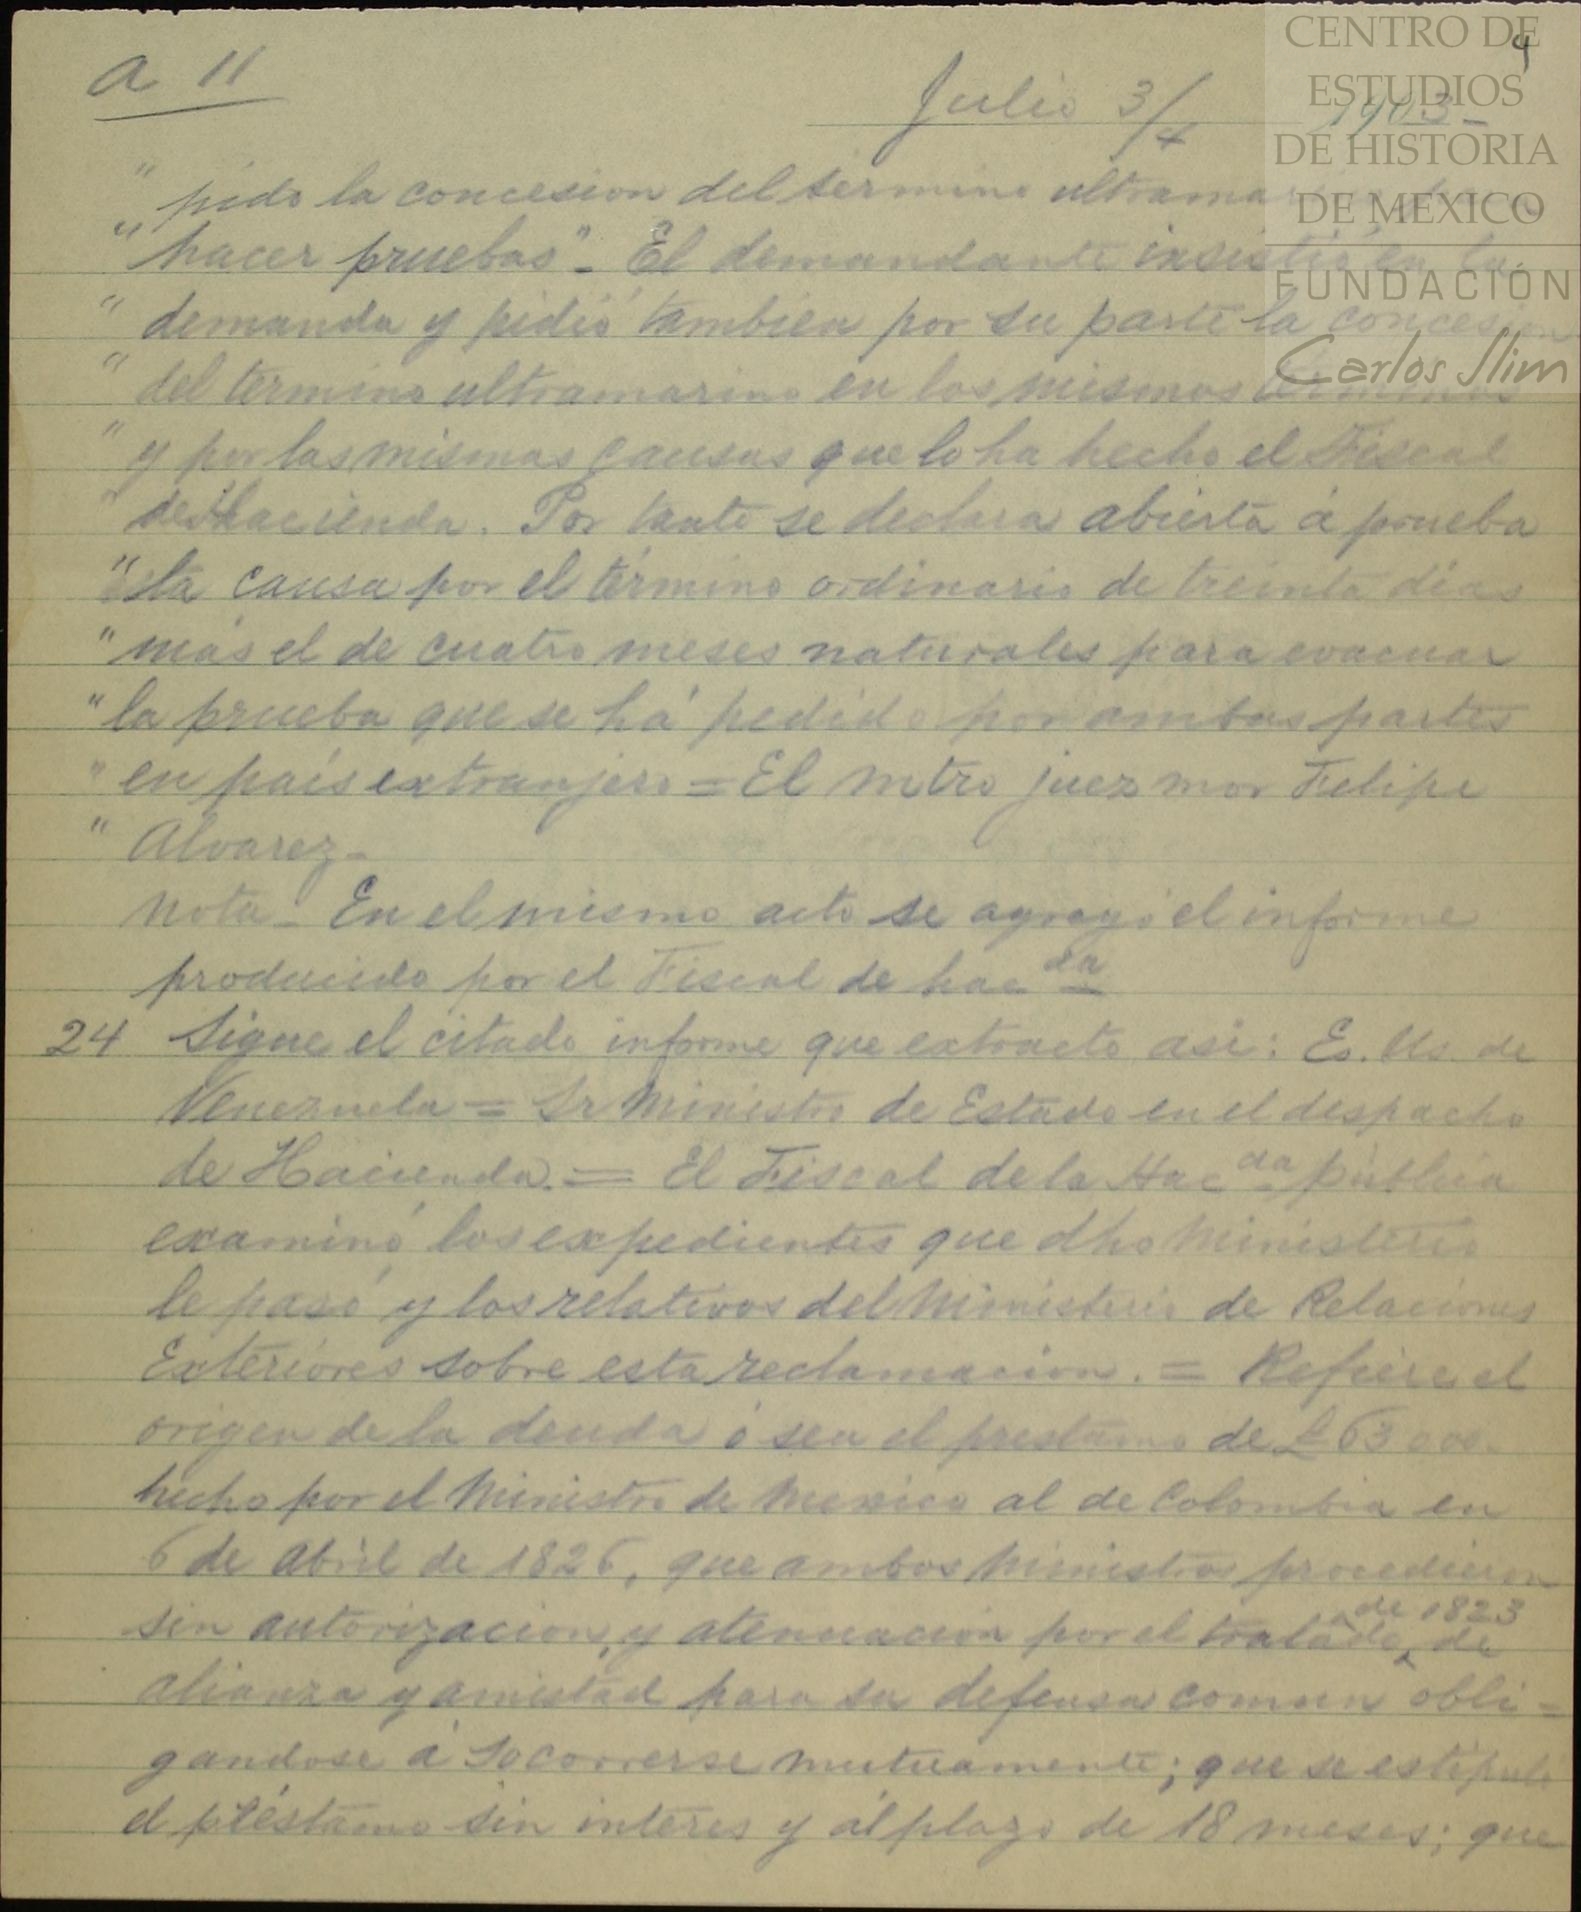 a 11
4
Julio 3/4 1903-
" pido la concesion del termino ultramarino para
" hacer pruebas" - El demandante insistió en la
" demanda y pidió tambien por su parte la concesion
" del termino ultramarino en los mismos terminos
" y por las mismas causas que lo ha hecho el Fiscal
" de Hacienda. Por tanto se declara abierta á prueba
" esta causa por el término ordinario de treinta dias
" más el de cuatro meses naturales para evacuar
" la prueba que se há pedido por ambas partes
" en país extranjero = El mtro juez mor Felipe
" Alvarez -
Nota - En el mismo acto se agregó el informe
producido por el Fiscal de hacda
24 Sigue el citado informe que extracto asi: Es. Us. de
Venezuela = Sr Ministro de Estado en el despacho
de Hacienda. = El Fiscal de la Hacda pública
examinó los expedientes que dho Ministerio
le pasó y los relativos del Ministerio de Relaciones
Exteriores sobre esta reclamacion. = Refiere el
origen de la deuda ó sea el prestamo de £63000.
hecho por el Ministro de Mexico al de Colombia en
6 de Abril de 1826, que ambos Ministros procedieron
sin autorizacion, y atenuacion por el tratado de 1823 de
alianza y amistad para su defensa comun obli=
gandose á socorrerse mutuamente; que se estipuló
el préstamo sin interes y al plazo de 18 meses; que
CENTRO DE
ESTUDIOS
DE HISTORIA
DE MEXICO
FUNDACIÓN
Carlos Slim